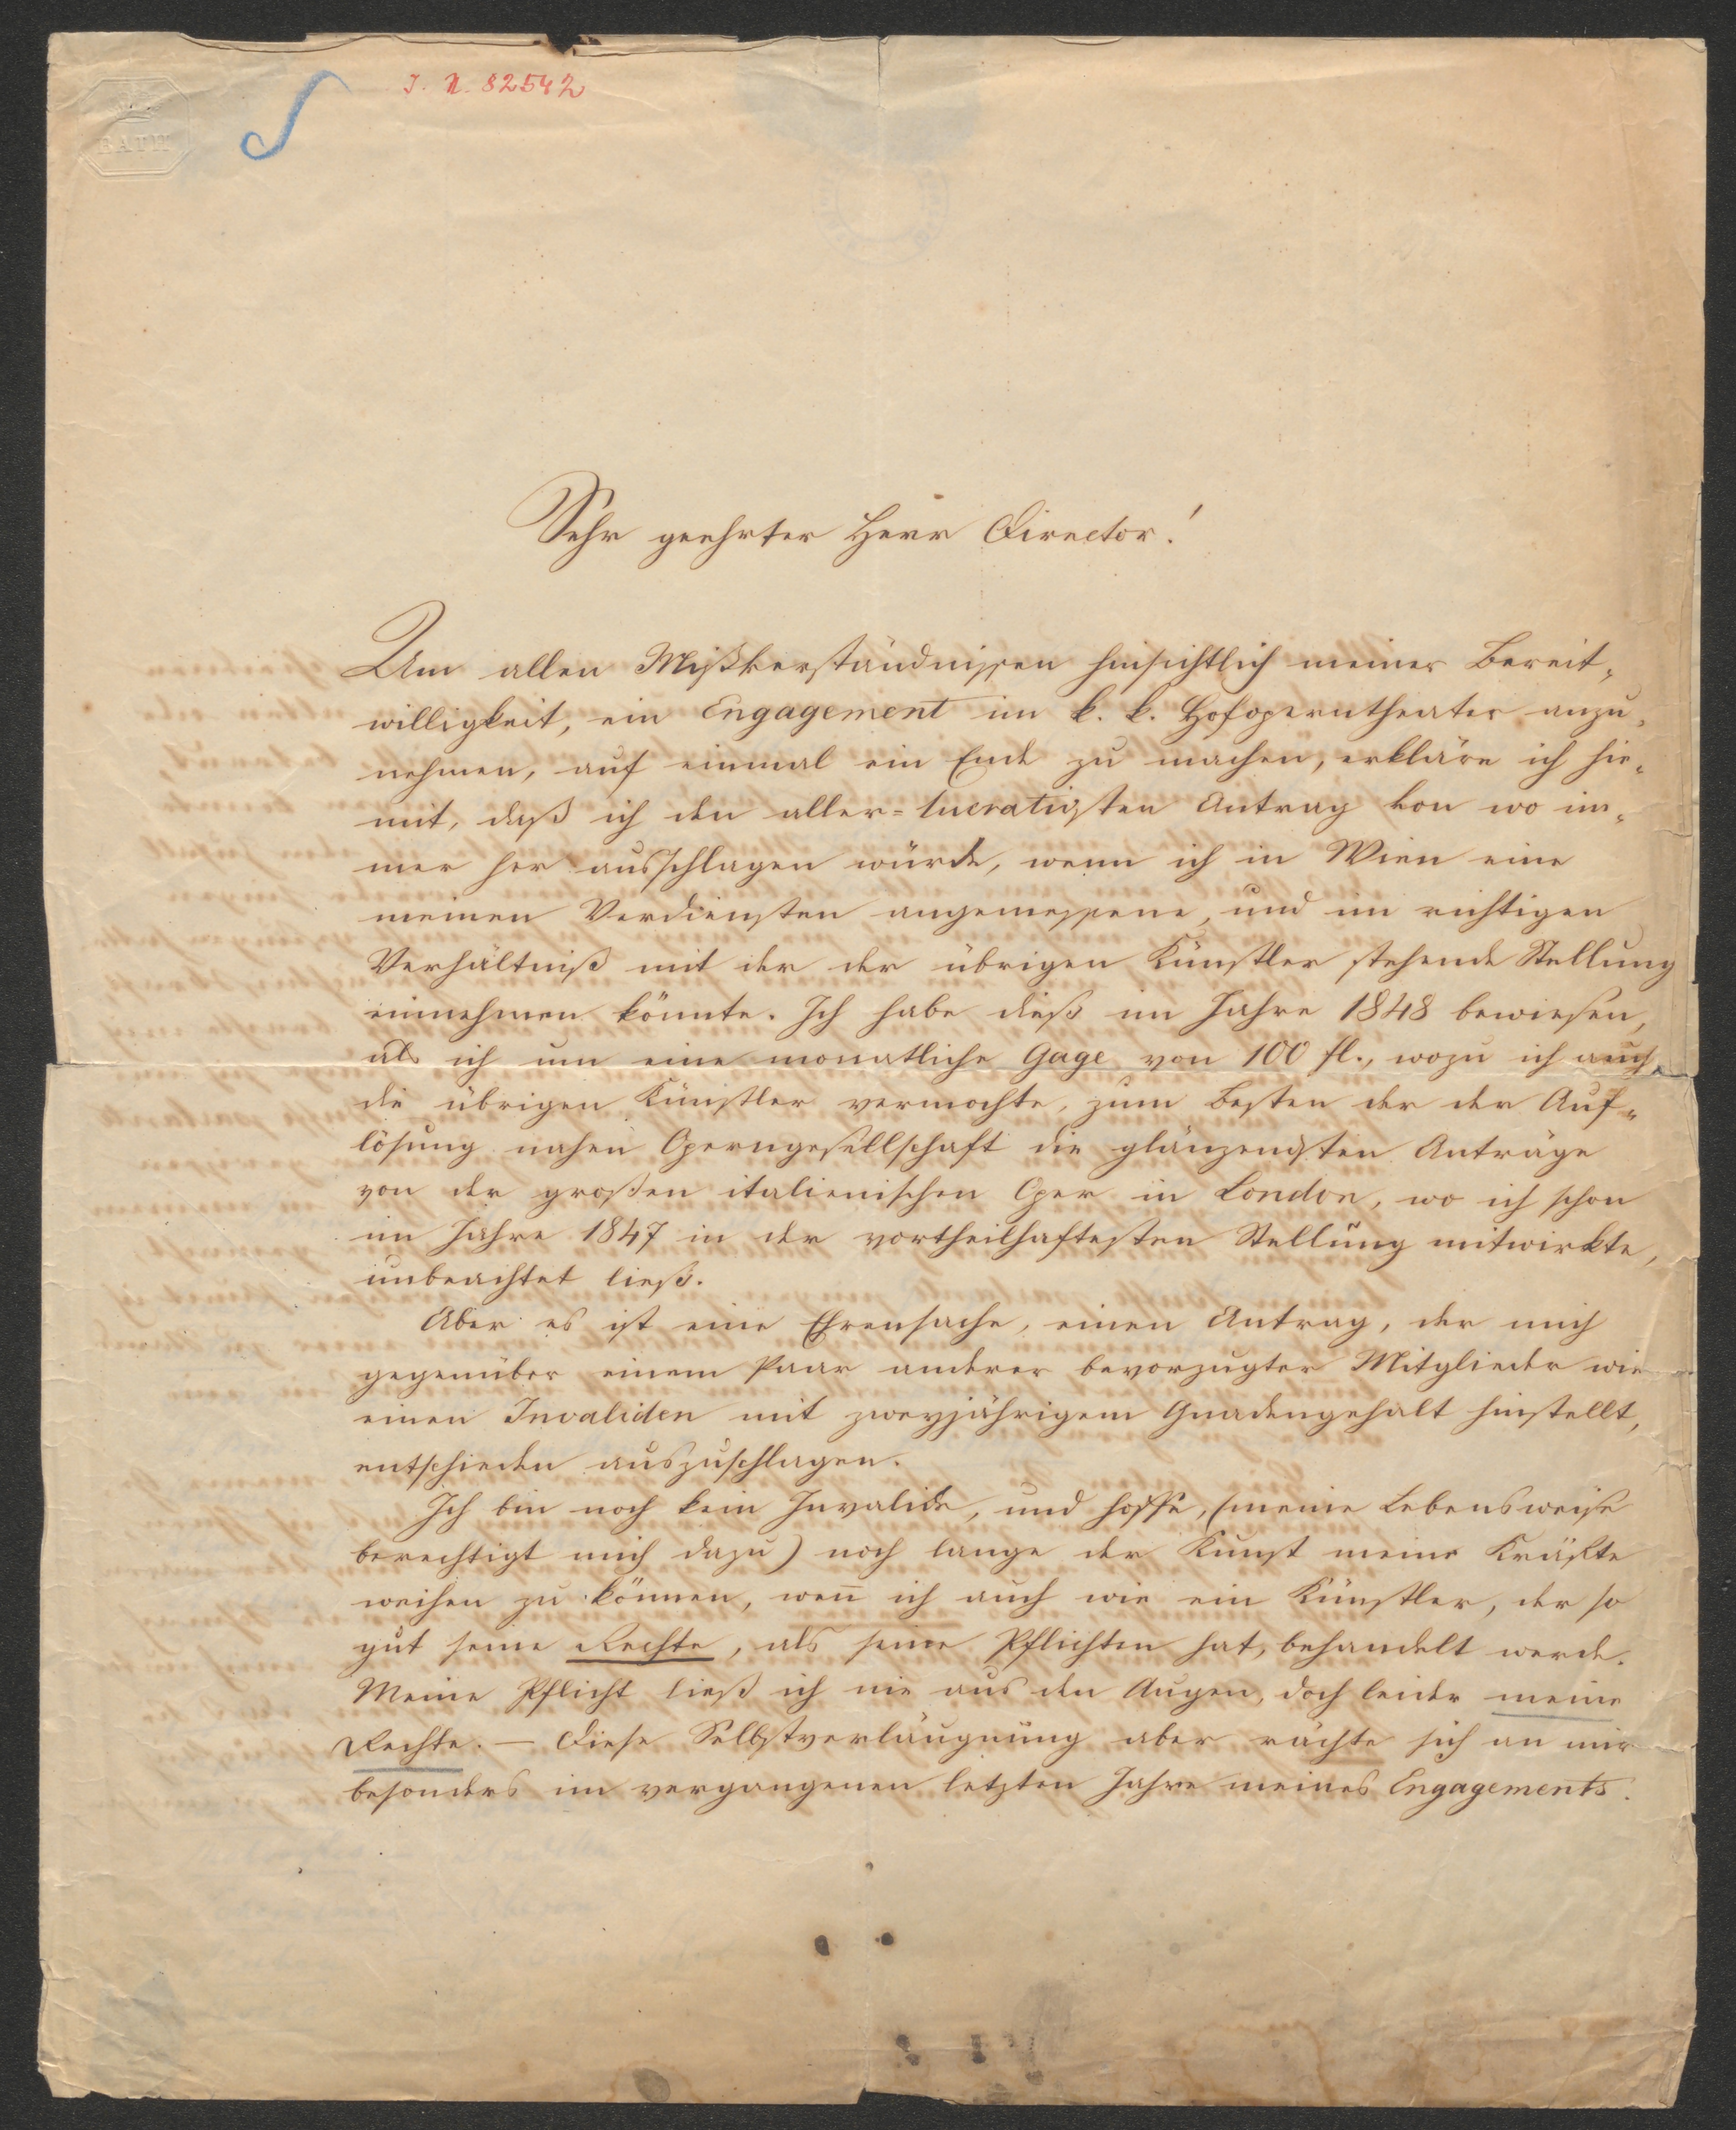 BATH
J. N. 82542
Sehr geehrter Herr Director!
Um allen Mißverständnissen hinsichtlich meiner Bereit-
willigkeit, ein Engagement im k. k. Hofoperntheater anzu-
nehmen, auf einmal ein Ende zu machen, erkläre ich hie-
mit, daß ich den aller-lucrativsten Antrag von wo im-
mer her ausschlagen würde, wenn ich in Wien eine
meinen Verdiensten angemessene, und im richtigen
Verhältniß mit der der übrigen Künstler stehende Stellung
einnehmen könnte. Ich habe dieß im Jahre 1848 bewiesen,
als ich um eine monatliche Gage von 100 fl., wozu ich auch
die übrigen Künstler vermochte, zum Besten der der Auf-
lösung nahen Operngesellschaft die glänzendsten Anträge
von der großen italienischen Oper in London, wo ich schon
im Jahre 1847 in der vortheilhaftesten Stellung mitwirkte,
unbeachtet ließ.
Aber es ist eine Ehrensache, einen Antrag, der mich
gegenüber einem Paar anderer bevorzugter Mitglieder wie
einen Invaliden mit zweyjährigem Gnadengehalt hinstellt,
entschieden auszuschlagen.
Ich bin noch kein Invalide, und hoffe, (meine Lebensweise
berechtigt mich dazu) noch lange der Kunst meine Kräfte
weihen zu können, wen̄ ich auch wie ein Künstler, der so
gut seine Rechte, als seine Pflichten hat, behandelt werde.
Meine Pflicht ließ ich nie aus den Augen, doch leider meine
Rechte. — Diese Selbstverläugnung aber rächte sich an mir
besonders im vergangenen letzten Jahre meines Engagements.